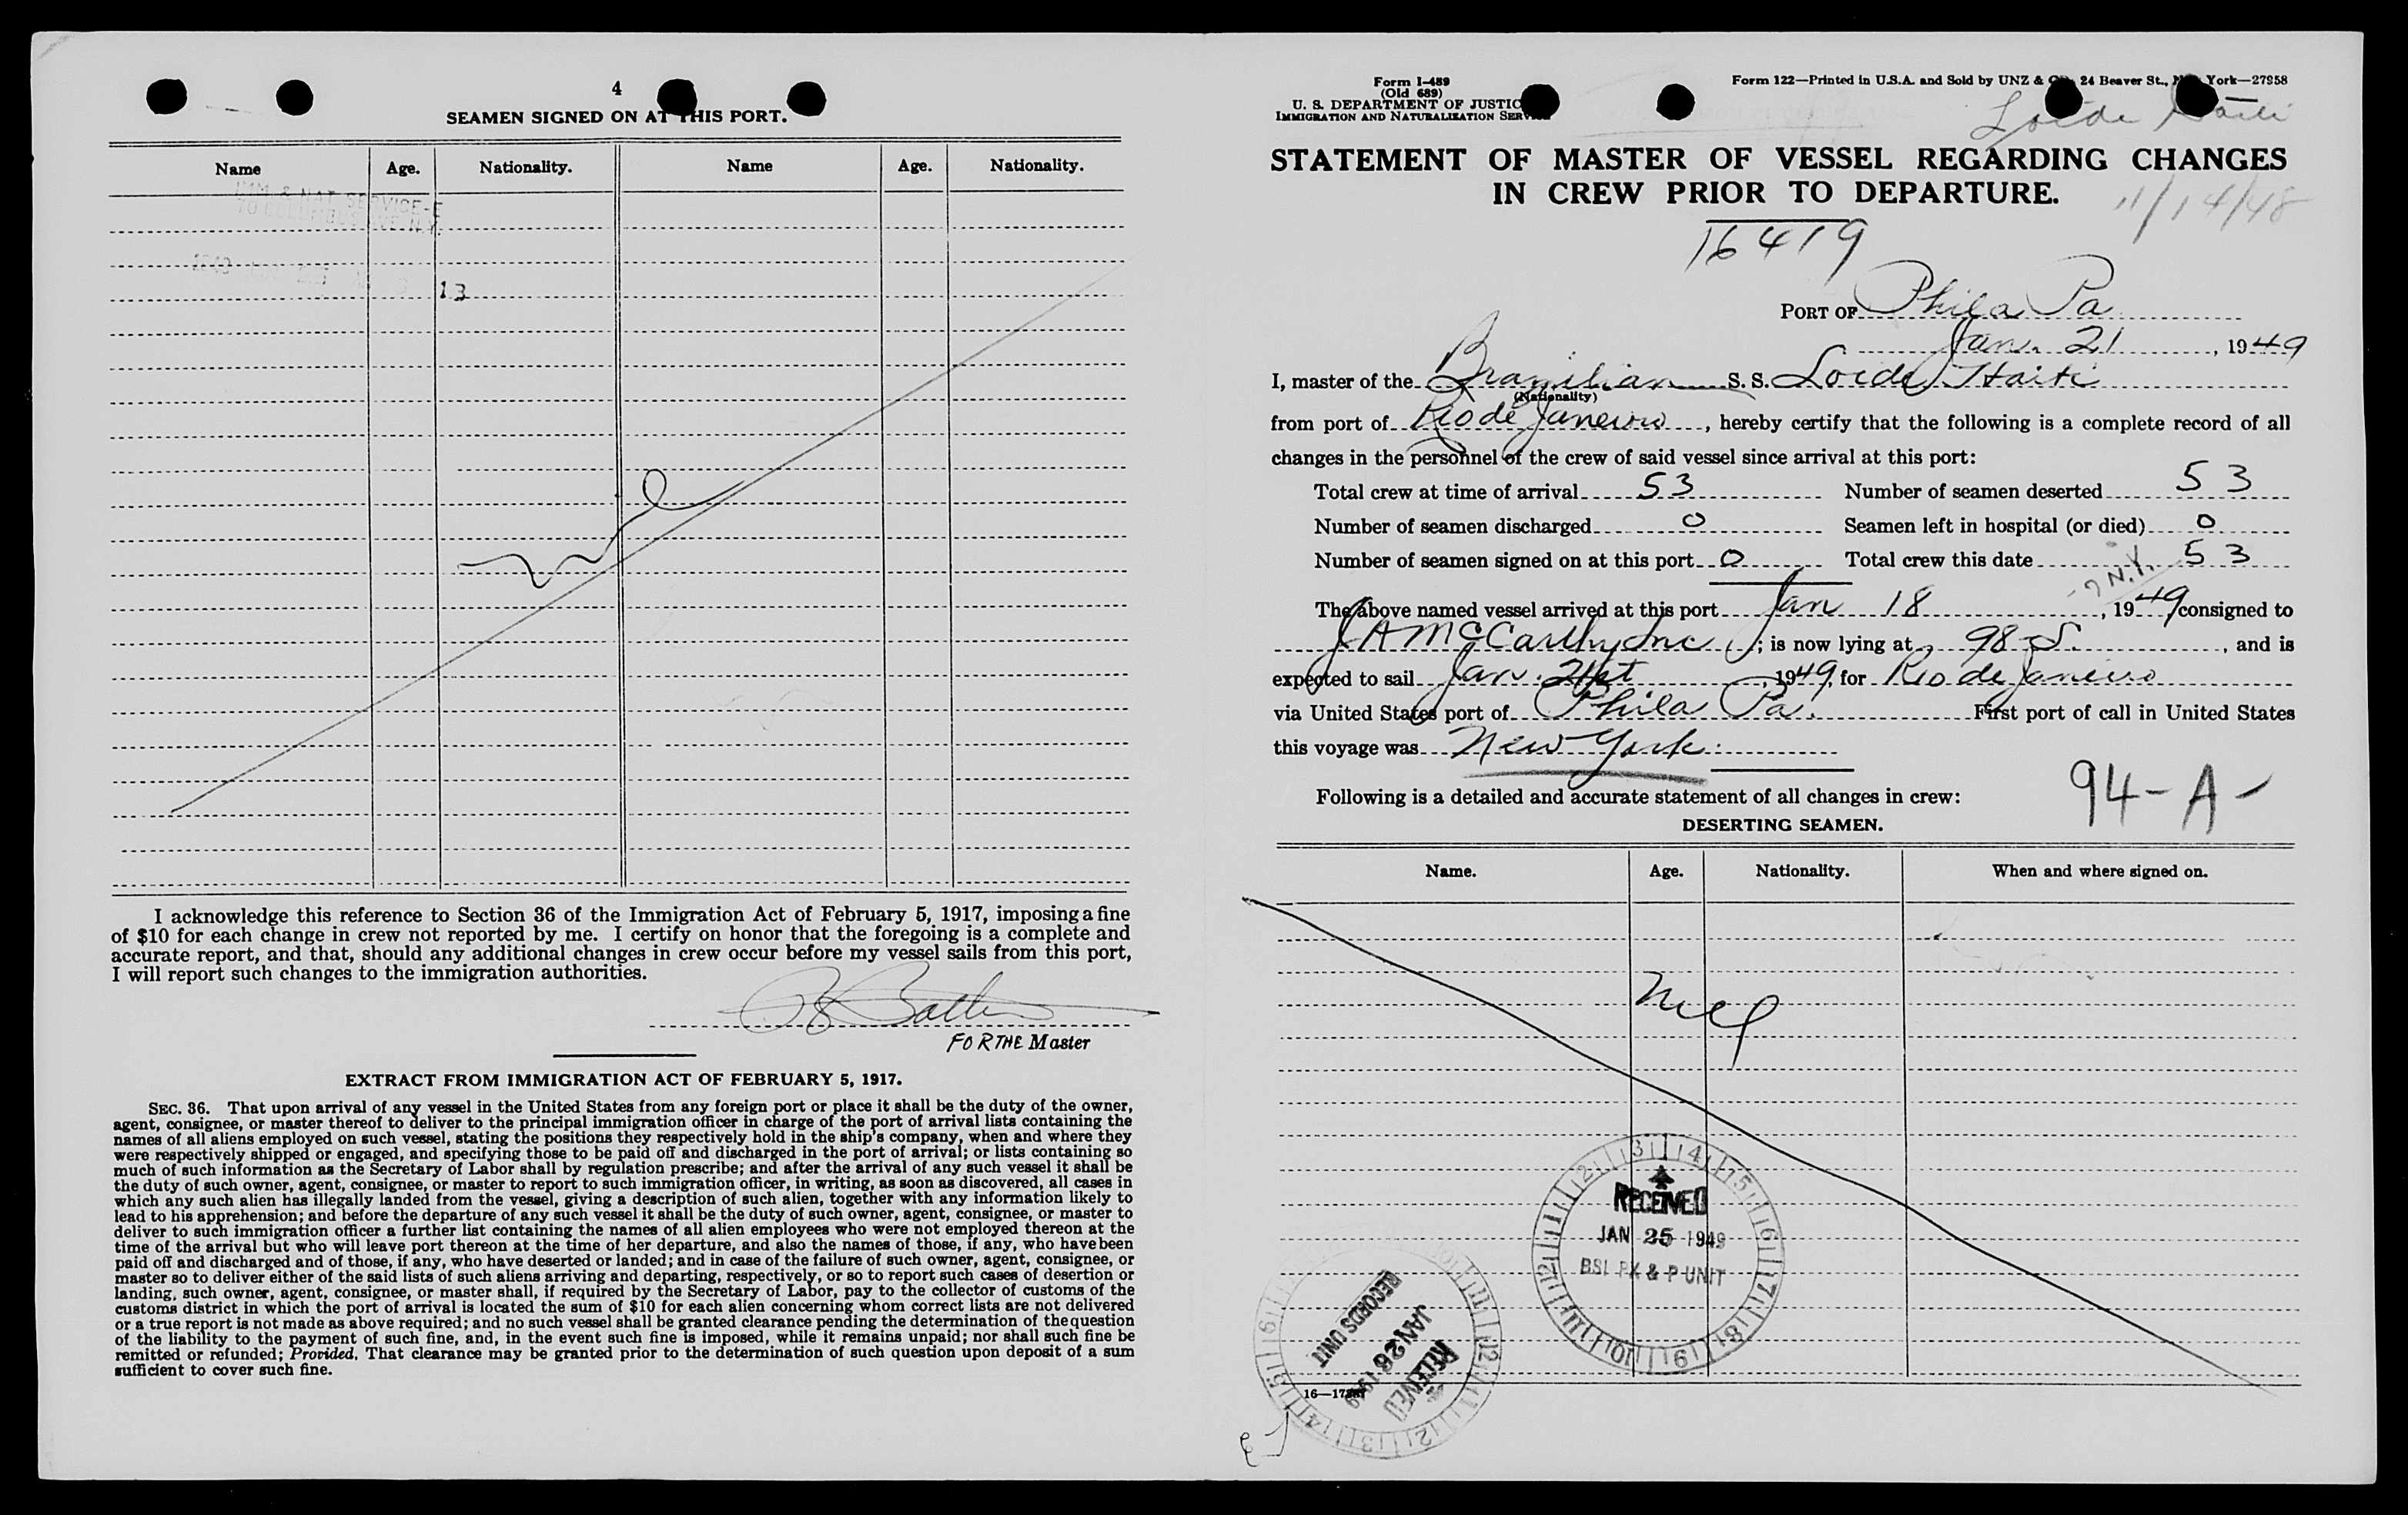 4
SEAMEN SIGNED ON AT THIS PORT.
Name Age. Nationality. Name Age. Nationality.
IMM & NAT SERVICE-E
70 COLUMBUS AVE N.Y.
13
I acknowledge this reference to Section 36 of the Immigration Act of February 5, 1917, imposing a fine
of $10 for each change in crew not reported by me. I certify on honor that the foregoing is a complete and
accurate report, and that, should any additional changes in crew occur before my vessel sails from this port,
I will report such changes to the immigration authorities.
FOR THE Master
EXTRACT FROM IMMIGRATION ACT OF FEBRUARY 5, 1917.
SEC. 36. That upon arrival of any vessel in the United States from any foreign port or place it shall be the duty of the owner,
agent, consignee, or master thereof to deliver to the principal immigration officer in charge of the port of arrival lists containing the
names of all aliens employed on such vessel, stating the positions they respectively hold in the ship's company, when and where they
were respectively shipped or engaged, and specifying those to be paid off and discharged in the port of arrival; or lists containing so
much of such information as the Secretary of Labor shall by regulation prescribe; and after the arrival of any such vessel it shall be
the duty of such owner, agent, consignee, or master to report to such immigration officer, in writing, as soon as discovered, all cases in
which any such alien has illegally landed from the vessel, giving a description of such alien, together with any information likely to
lead to his apprehension; and before the departure of any such vessel it shall be the duty of such owner, agent, consignee, or master to
deliver to such immigration officer a further list containing the names of all alien employees who were not employed thereon at the
time of the arrival but who will leave port thereon at the time of her departure, and also the names of those, if any, who have been
paid off and discharged and of those, if any, who have deserted or landed; and in case of the failure of such owner, agent, consignee, or
master so to deliver either of the said lists of such aliens arriving and departing, respectively, or so to report such cases of desertion or
landing, such owner, agent, consignee, or master shall, if required by the Secretary of Labor, pay to the collector of customs of the
customs district in which the port of arrival is located the sum of $10 for each alien concerning whom correct lists are not delivered
or a true report is not made as above required; and no such vessel shall be granted clearance pending the determination of the question
of the liability to the payment of such fine, and, in the event such fine is imposed, while it remains unpaid; nor shall such fine be
remitted or refunded; Provided, That clearance may be granted prior to the determination of such question upon deposit of a sum
sufficient to cover such fine.
Form I-489
(Old 689)
U. S. DEPARTMENT OF JUSTIC
IMMIGRATION AND NATURALIZATION SERVICE
Form 122—Printed in U.S.A. and Sold by UNZ & Co., 24 Beaver St., New York—27958
Loide Haiti
STATEMENT OF MASTER OF VESSEL REGARDING CHANGES
IN CREW PRIOR TO DEPARTURE.
11/14/48
16419
PORT OF Phila Pa
Jan. 21, 1949
I, master of the Brazilian S. S. Loide Haiti
(Nationality)
from port of Rio de Janeiro, hereby certify that the following is a complete record of all
changes in the personnel of the crew of said vessel since arrival at this port:
Total crew at time of arrival 53 Number of seamen deserted 53
Number of seamen discharged 0 Seamen left in hospital (or died) 0
Number of seamen signed on at this port 0 Total crew this date 53
N.Y.
The above named vessel arrived at this port Jan 18, 1949 consigned to
J A McCarthy Inc; is now lying at 98 S., and is
expected to sail Jan. 21st, 1949, for Rio de Janeiro
via United States port of Phila Pa. First port of call in United States
this voyage was New York.
Following is a detailed and accurate statement of all changes in crew:
94-A-
DESERTING SEAMEN.
Name. Age. Nationality. When and where signed on.
RECEIVED
JAN 25 1949
BSI PX & P UNIT
RECEIVED
JAN 26 1949
RECORDS UNIT